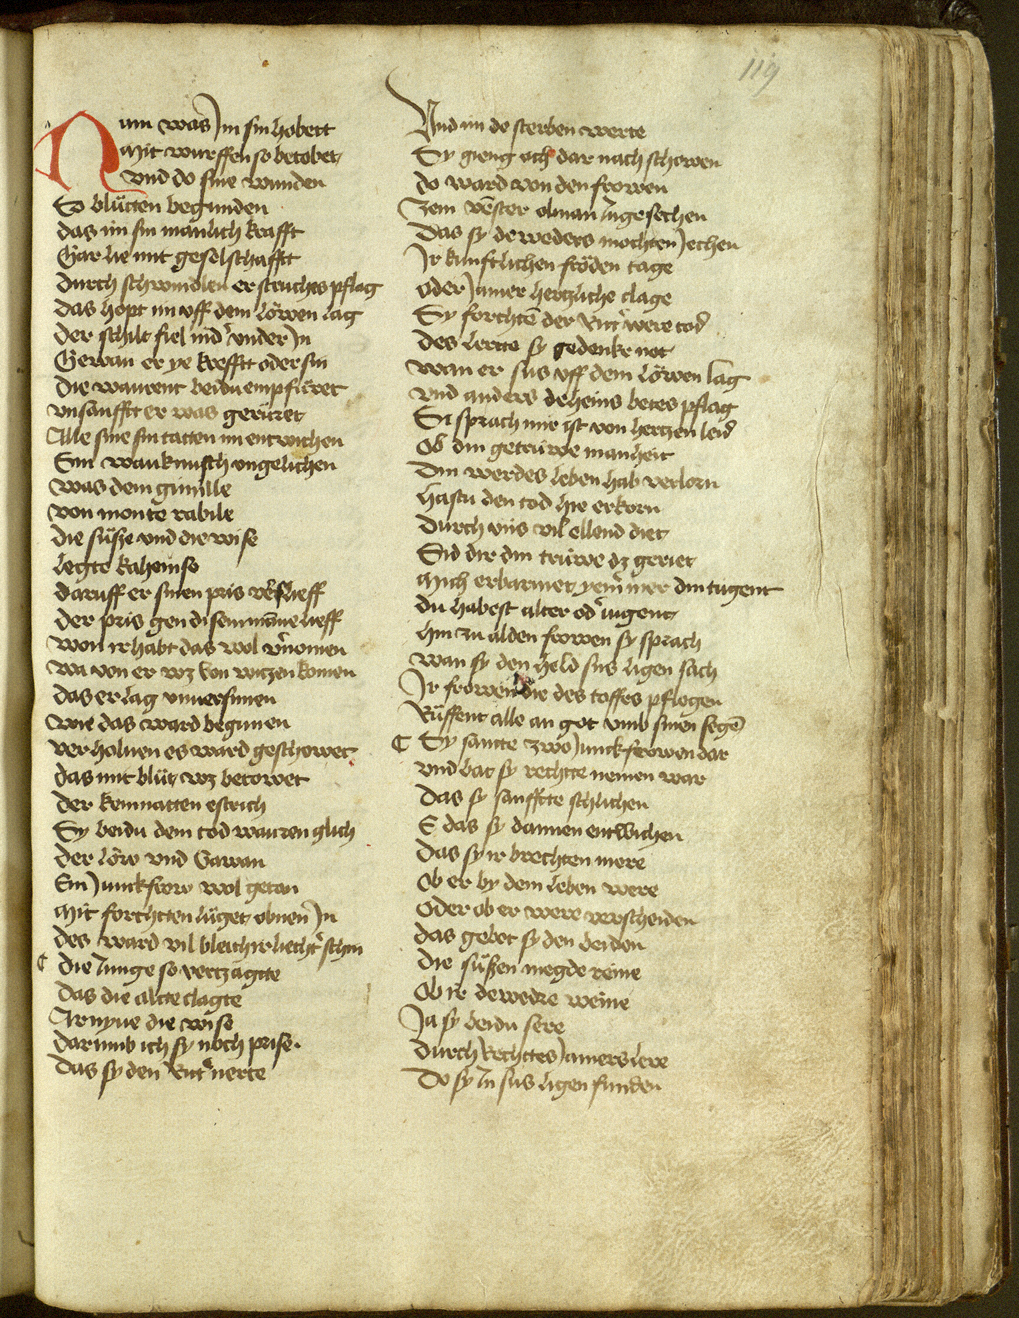 119
Num was Jm sin hobett
Mit wurffen so betobet
Vnd do sine wunden
So blütten begunden
das im sin manlich krafft
Gar lie mit geselschafft
durch schwindlen er struches pflag
das hopt im vff dem löwen lag
der schilt fiel nider vnder Jn
Gewan er ye krefftt oder sin
die warent beidu empfüret
vnsanfft er was gerüret
Alle sine sin tatten im entwichen
Sin wankusch vngelichen
was dem gimille
von monte rabile
die süsse vnd die wise
legte kaheniso
daruff er sinen pris verslieff
der pris gen disem manne lieff
won ir habt das wol vernomen
wa von er wz von witzen komen
das er lag vnuersinnen
wie das ward begunen
verholnen es ward geschowet
das mit blüt wz betowet
der kemnatten estrich
Sy beidu dem tod warren glich
der löw vnd Gawan
Ein Junckfrow wol getan
Mit forchtten lüget obnen Jn
des ward vil bleich ir liechter schin
die Junge so vertzagtte
das die altte clagte
Arnyue die wise
darumb ich sy noch prise
das sy den Ritter nerte
Vnd im do sterben werte
Sy gieng och dar nach schowen
do ward von den frowen
Zem venster obnan Jn gesechen
das sy deweders mochten Jechen
Jr kunftlichen fröden tage
oder Jamer hertzliche clage
Sy forchten der Ritter were tod
des lertte sy gedenke not
wan er sus vff dem löwen lag
vnd anders deheins betes pflag
Si sprach mir ist von hertzen leid
Ob din getrüwe manheit
din werdes leben hab verlorn
hastu den tod hie erkorn
durch vns vil ellend diet
Sid dir din trüwe dz geriet
Mich erbarmet yemer mer din tugent
du habest alter oder iugent
hin zu alden frowen sy sprach
wan sy den held sus ligen sach
Jr frowen die des toffes pflegen
Rüffent alle an got vmb sinen segen
Sy sante zwo Junckfrowen dar
vnd bat sy rechtte nemen war
das sy sanfftte schlichen
E das sy dannen entwichen
das sy ir brechten mere
Ob er by dem leben were
Oder ob er were verscheiden
das gebot sy den beiden
die süssen megde reine
Ob ir dewedre weine
Ja sy beidu sere
durch Rechttes Jamers lere
Do sy Jn sus ligen funden